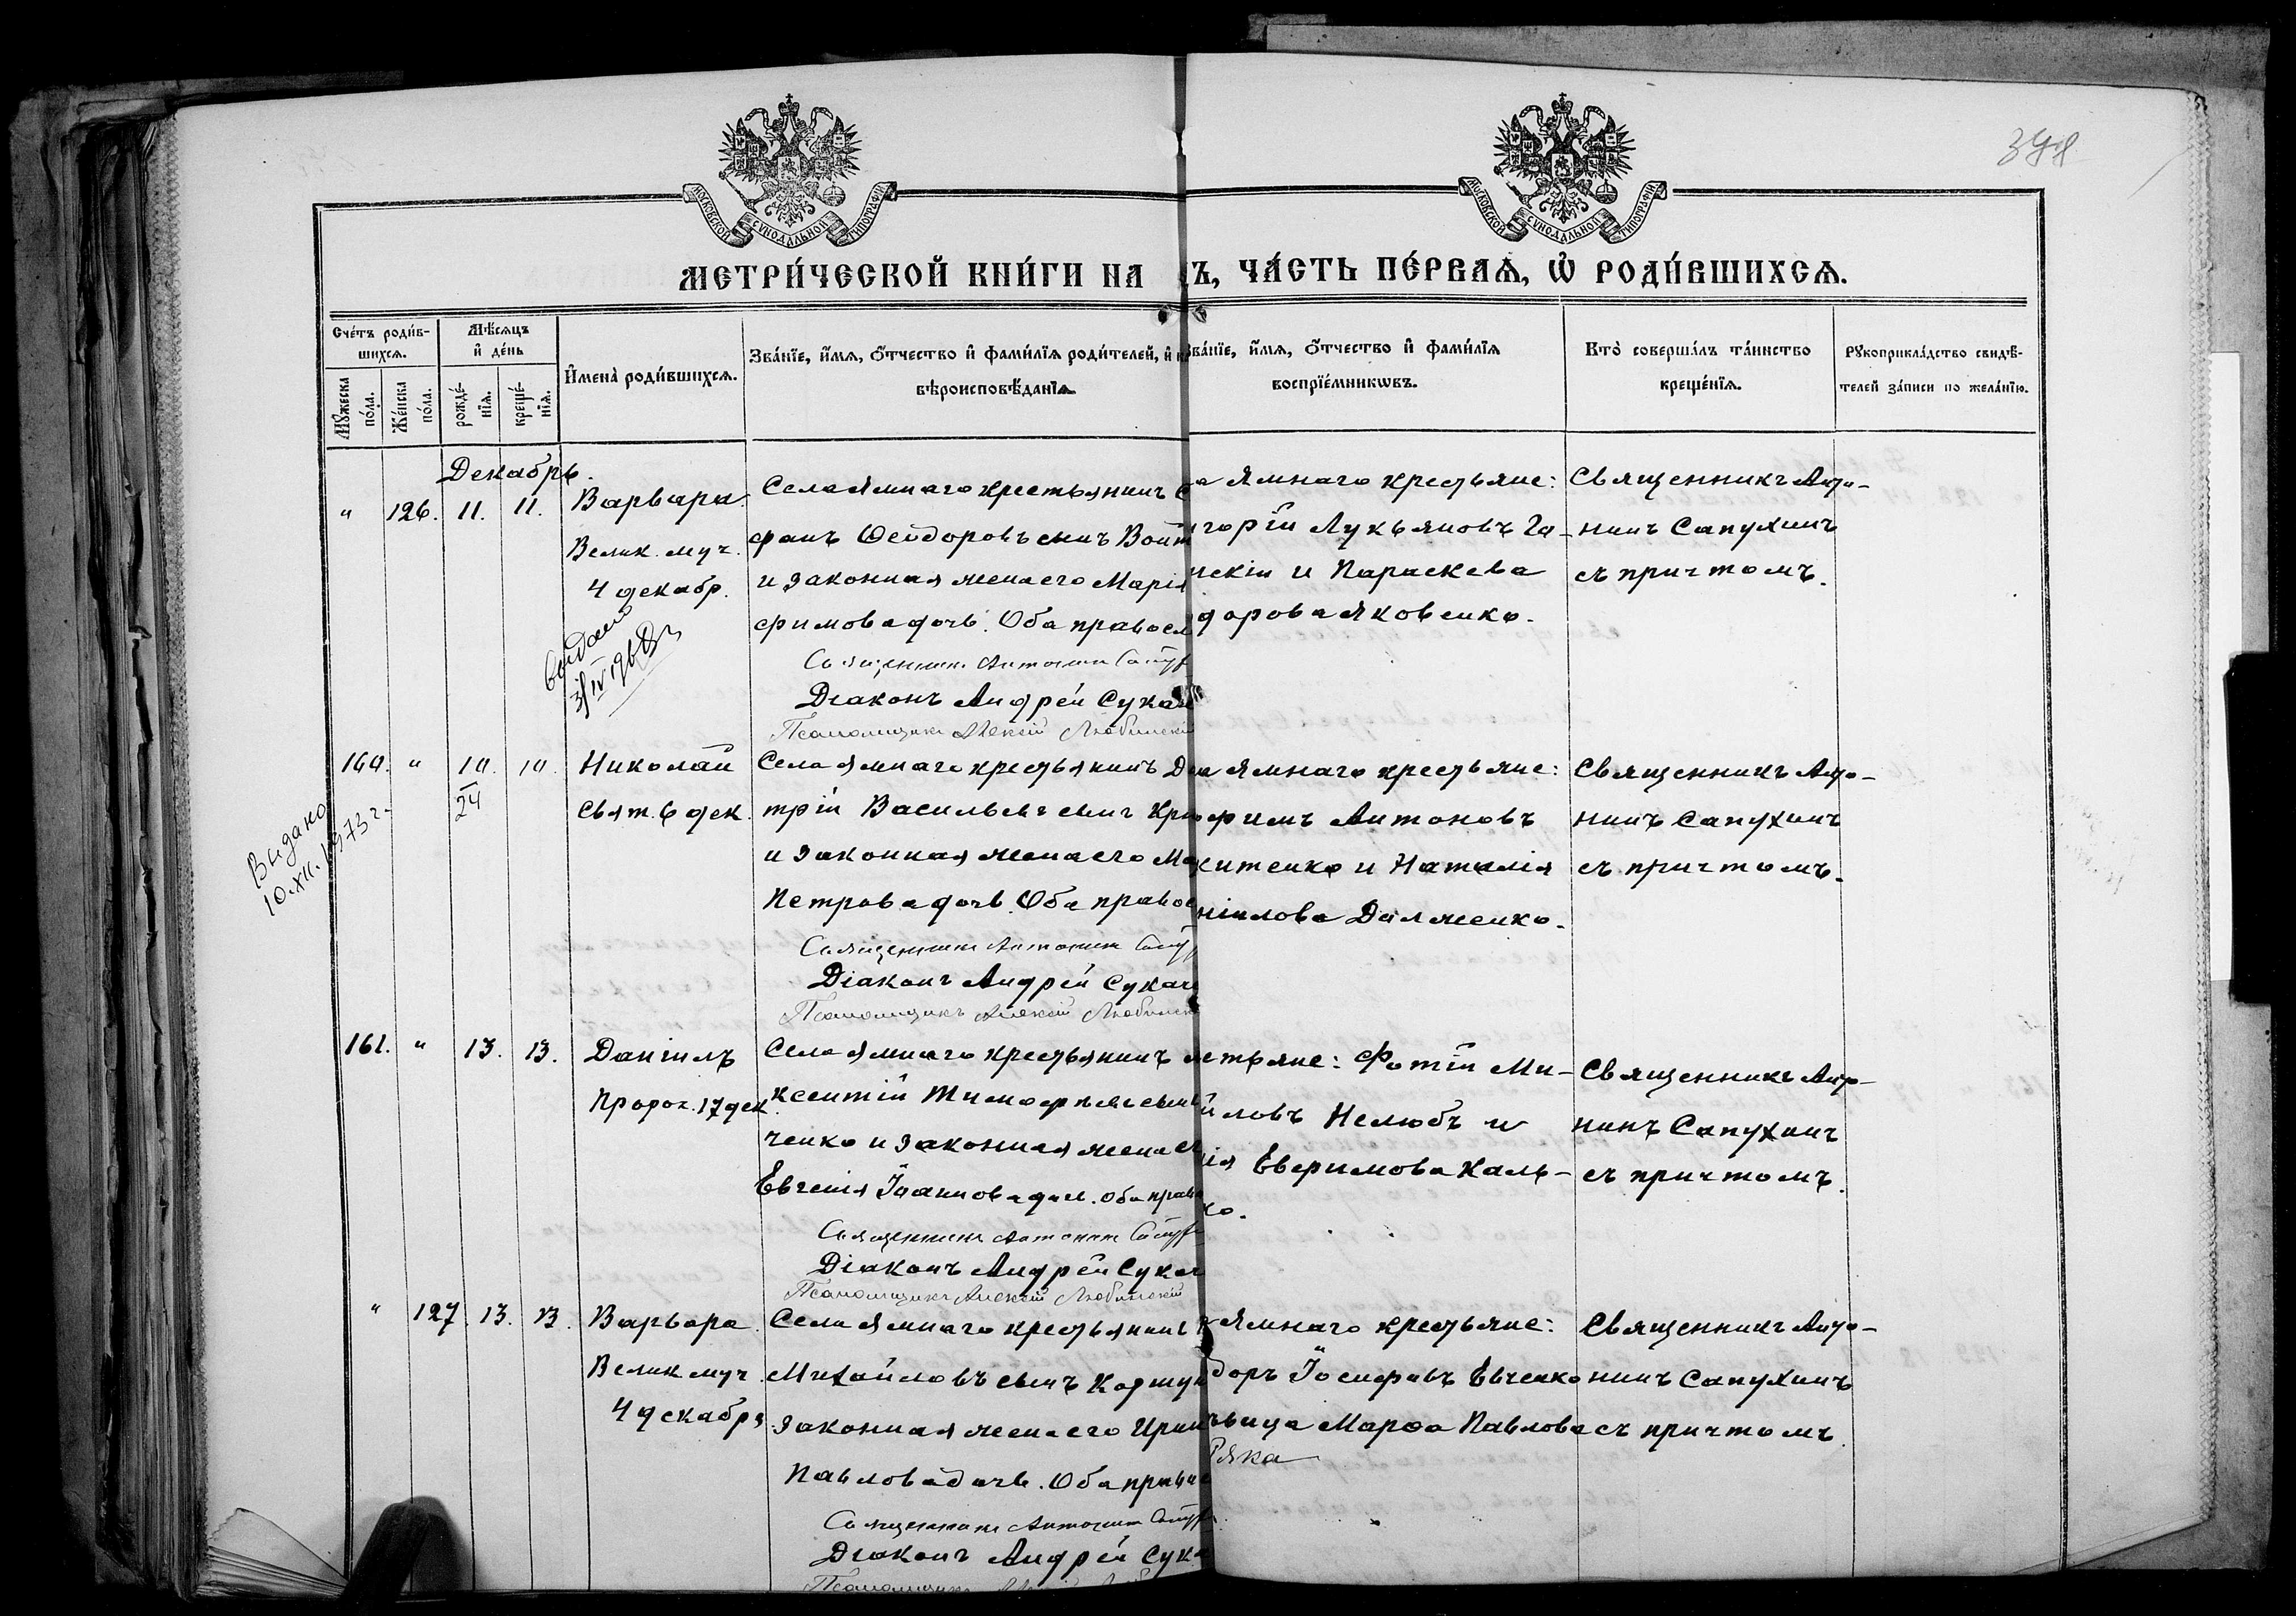 378
МОСКОВСКОЙ СУНОДАЛЬНОЙ ТИПОГРАФІИ
МОСКОВСКОЙ СУНОДАЛЬНОЙ ТИПОГРАФІИ
МЕТРИ́ЧЕСКОЙ КНИ́ГИ НА Ъ, ЧА́СТЬ ПЕ́РВАѦ, Ѽ РОДИ́ВШИХСѦ.
Сче́тъ роди́в-
шихсѧ.
Мꙋ́жеска
по́ла.
Же́нска
по́ла.
Мѣ́сѧцъ
и҆ де́нь
рожде́-
нїѧ.
креще́-
нїѧ.
И҆мена̀ роди́вшихсѧ.
Зва́нїе, и҆́мѧ, ѻ҆́тчество и҆ фами́лїѧ роди́телей, и҆
вѣроисповѣ́данїѧ
ва́нїе, и҆́мѧ, ѻ҆́тчество и҆ фами́лїѧ
воспрїе́мникѡвъ.
Кто̀ соверша́лъ та́инство
креще́нїѧ.
Рꙋкоприкла́дство свидѣ́-
телей за́писи по жела́нїю.
Декабрь.
" 126. 11. 11.
Варвара.
Велик. муч.
4 декабр.
Села Ямнаго крестьянинъ С
фанъ Ѳеодоровъ сынъ Войт
и законная жена его Марія
фимова дочь. Оба правосл
Священникъ Антонинъ Сапух
Діаконъ Андрей Сукач
Псаломщикъ Алексій Любинскій
а Ямнаго крестьяне:
горій Лукьяновъ Га-
нскій и Параскева
дорова Яковенко.
Священникъ Анто-
нинъ Сапухинъ
съ причтомъ.
160. " 10. 10.
24
Николай
Свят. 6 дек.
Выдано
10.XII.1973 г.
Села Ямнаго крестьянинъ Ди
трій Васильевъ сынъ Кри
и законная жена его Ма
Петрова дочь. Оба правос
Священникъ Антонинъ Сапу
Діаконъ Андрей Сукач
Псаломщикъ Алексій Любинск
а Ямнаго крестьяне:
фимъ Антоновъ
китенко и Наталія
ніилова Далженко.
Священникъ Анто-
нинъ Сапухинъ
съ причтомъ.
161. " 13. 13.
Даніилъ
Пророк. 17 дек.
Села Ямнаго крестьянинъ
ксентій Тимофѣевъ сынъ
ченко и законная жена ег
Евгенія Іоаннова дочь. Оба прав
Священникъ Антонинъ Сапух
Діаконъ Андрей Сукач
Псаломщикъ Алексій Любинскій
естьяне: Фотій Ми-
йловъ Нелюбъ и
ія Евфимова Каль-
ко.
Священникъ Анто-
нинъ Сапухинъ
съ причтомъ.
" 127. 13. 13.
Варвара.
Велик муч.
4 декабря.
Села Ямнаго крестьянинъ
Михайловъ сынъ Коршун
законная жена его Ирин
Павлова дочь. Оба правос
Священникъ Антонинъ Сапух
Діаконъ Андрей Сука
Псаломщикъ
Ямнаго крестьяне:
доръ Іосифовъ Евченко
вица Марѳа Павлова
Ряка
Священникъ Анто-
нинъ Сапухинъ
съ причтомъ.